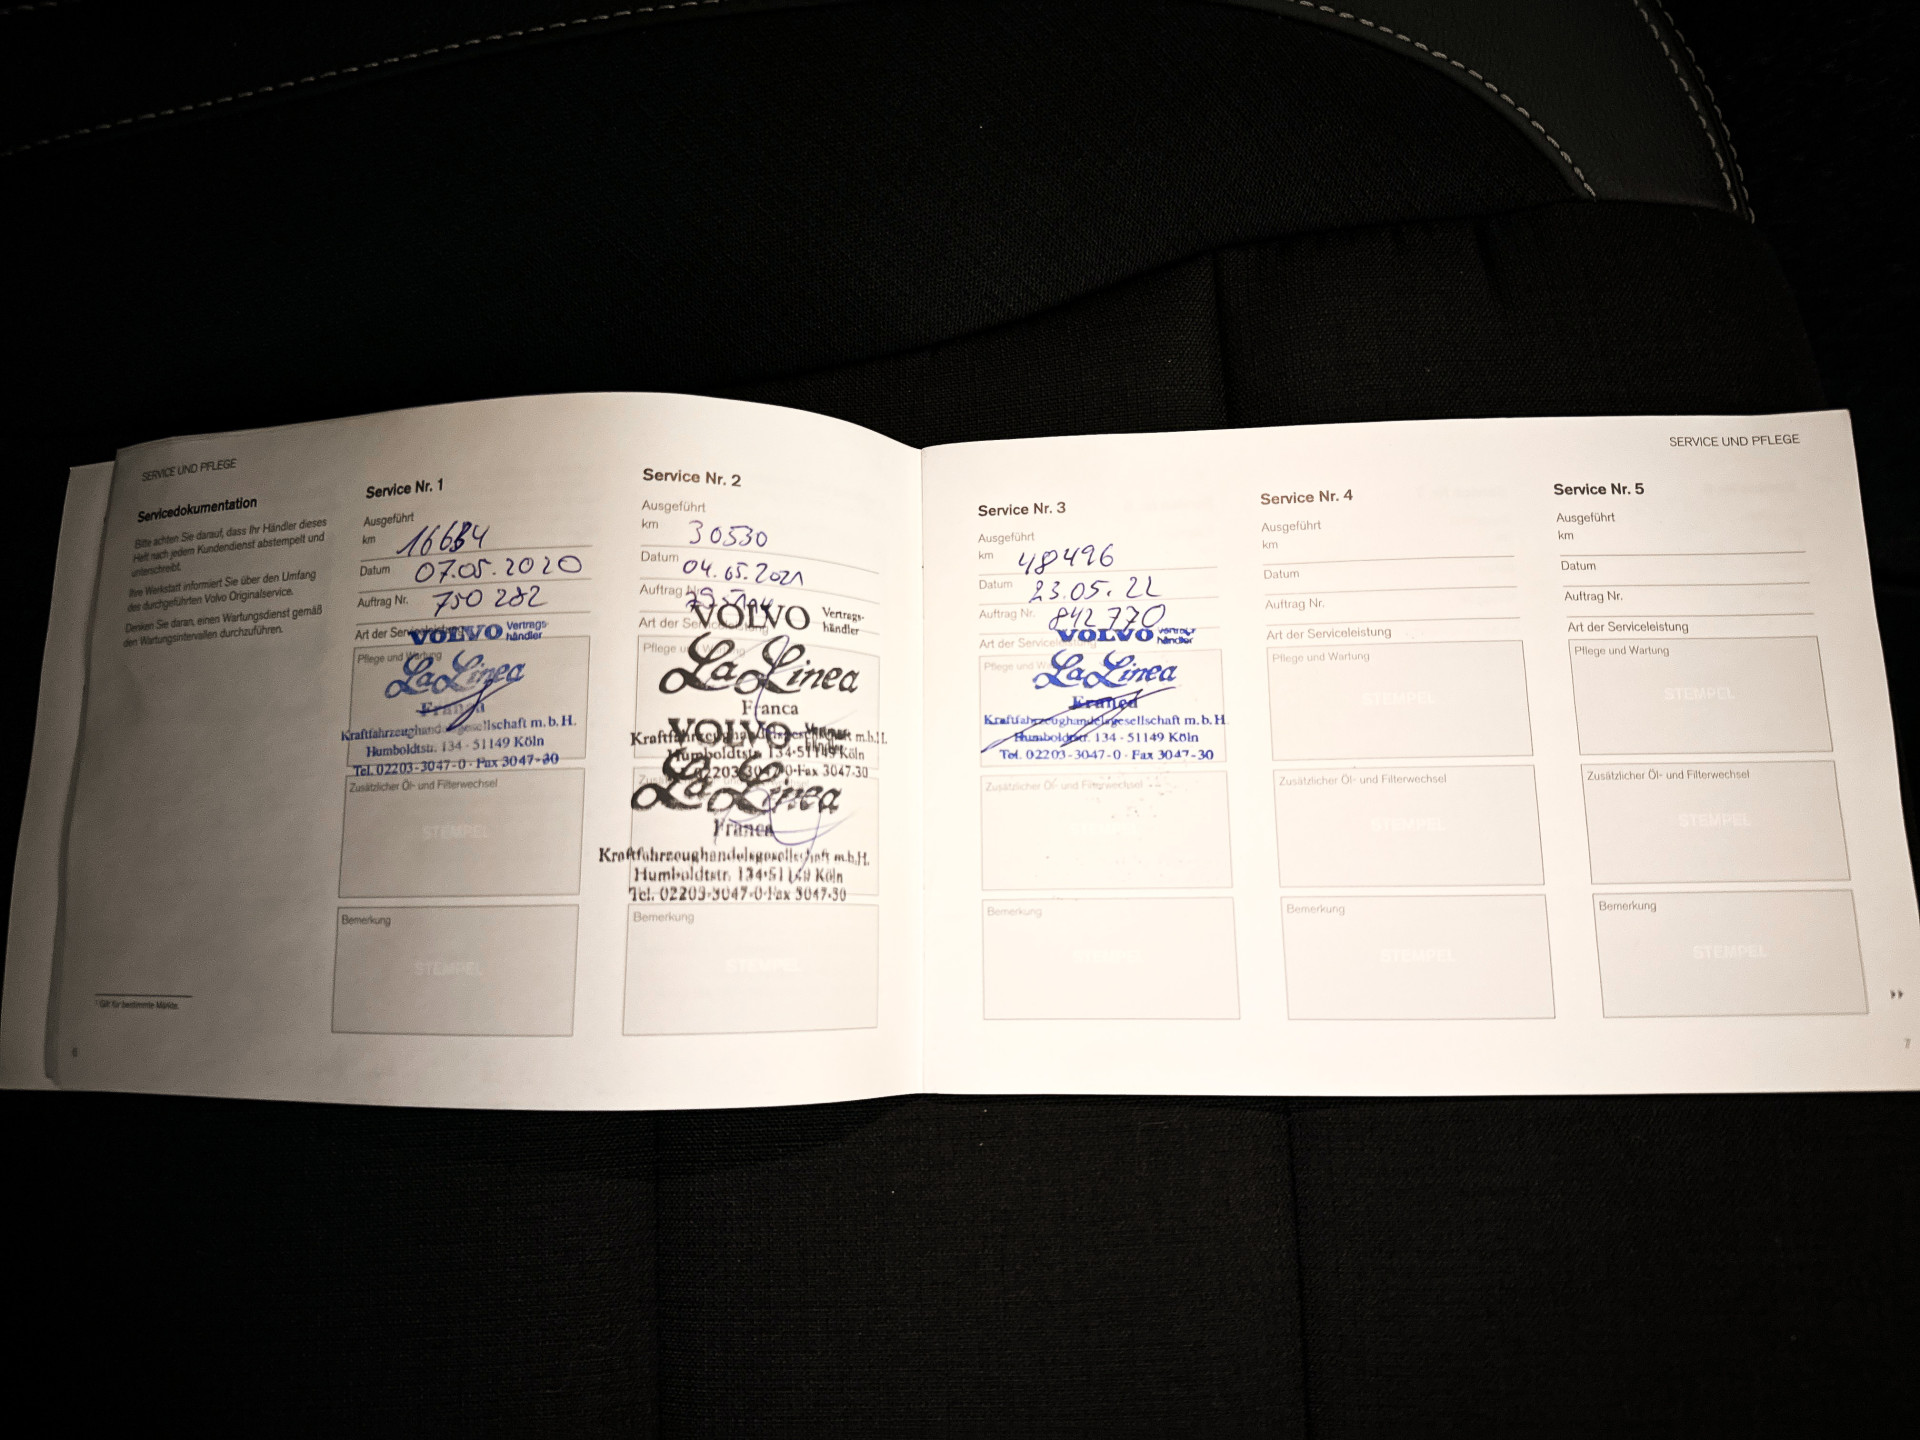 SERVICE UND PFLEGE
Servicedokumentation
Bitte achten Sie darauf, dass Ihr Händler dieses
Heft nach jedem Kundendienst abstempelt und
unterschreibt.
Ihre Werkstatt informiert Sie über den Umfang
des durchgeführten Volvo Originalservice.
Denken Sie daran, einen Wartungsdienst gemäß
den Wartungsintervallen durchzuführen.
1 Gilt für bestimmte Märkte.
6
Service Nr. 1
Ausgeführt
km 16684
Datum 07.05.2020
Auftrag Nr. 750 282
Art der Serviceleistung
VOLVO Vertrags-
händler
Pflege und Wartung
La Linea
Franca
Kraftfahrzeughandelsgesellschaft m.b.H.
Humboldtstr. 134 - 51149 Köln
Tel. 02203-3047-0 · Fax 3047-30
Zusätzlicher Öl- und Filterwechsel
STEMPEL
Bemerkung
STEMPEL
Service Nr. 2
Ausgeführt
km 30530
Datum 04.05.2021
Auftrag Nr.
Art der Serviceleistung
VOLVO Vertrags-
händler
Pflege und Wartung
La Linea
Franca
VOLVO
Kraftfahrzeughandelsgesellschaft m.b.H.
Humboldtstr. 134-51149 Köln
02203-3047-0-Fax 3047-30
La Linea
Franca
Kraftfahrzeughandelsgesellschaft m.b.H.
Humboldtstr. 134-51149 Köln
Tel. 02203-3047-0-Fax 3047-30
Bemerkung
STEMPEL
SERVICE UND PFLEGE
Service Nr. 3
Ausgeführt
km 48496
Datum 23.05.22
Auftrag Nr. 842 770
Art der Serviceleistung
VOLVO Vertrags-
händler
Pflege und Wartung
La Linea
Franca
Kraftfahrzeughandelsgesellschaft m.b.H.
Humboldtstr. 134 - 51149 Köln
Tel. 02203-3047-0 · Fax 3047-30
Zusätzlicher Öl- und Filterwechsel
STEMPEL
Bemerkung
STEMPEL
Service Nr. 4
Ausgeführt
km
Datum
Auftrag Nr.
Art der Serviceleistung
Pflege und Wartung
STEMPEL
Zusätzlicher Öl- und Filterwechsel
STEMPEL
Bemerkung
STEMPEL
Service Nr. 5
Ausgeführt
km
Datum
Auftrag Nr.
Art der Serviceleistung
Pflege und Wartung
STEMPEL
Zusätzlicher Öl- und Filterwechsel
STEMPEL
Bemerkung
STEMPEL
7